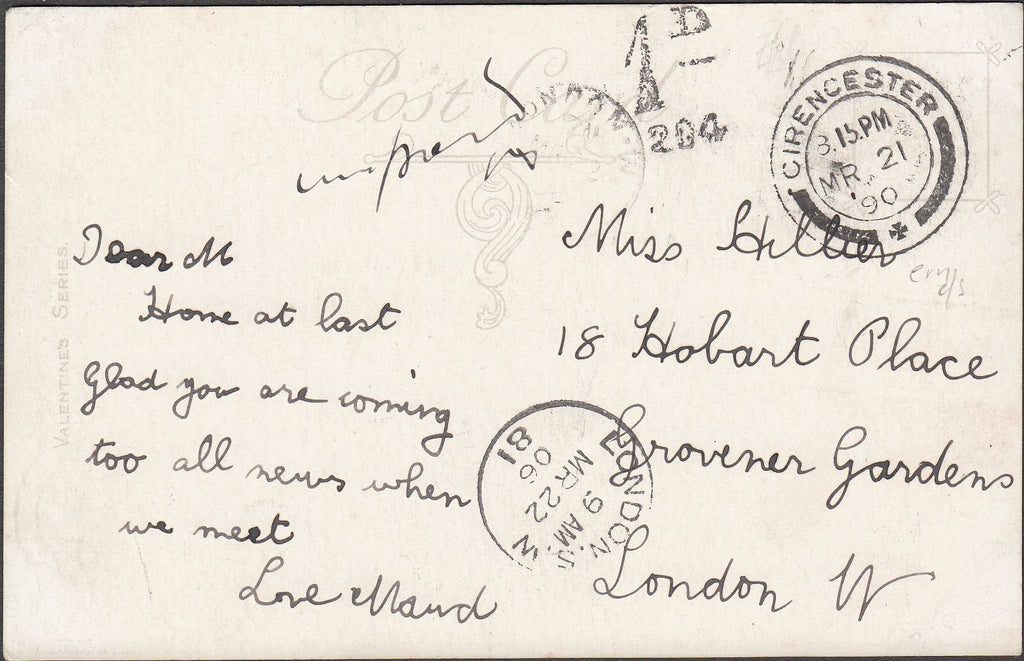 Post Card
1D
204
CIRENCESTER
8.15.PM
MR. 21
'90
Dear M
Home at last
Glad you are coming
too all news when
we meet
Love Maud
Miss Hillier
18 Hobart Place
Grovener Gardens
London W
LONDON. W
9 AM
MR 22
06
81
VALENTINE'S SERIES.